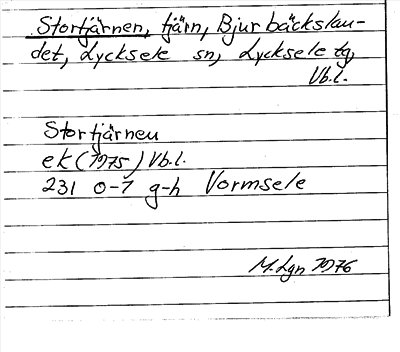 Stortjärnen, tjärn, Bjurbäckslan-
det, Lycksele sn, Lycksele tg,
Vb.l.
Stortjärnen
ek (1975) Vb.l.
231 0-1 g-h Vormsele
M.Lgn 1976